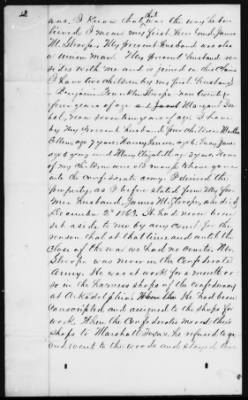 2
was. I know that was the way he be
lieved I mean my first Husband James
M. Stroope. My present Husband was also
a union man. My present Husband re
sides with me and is joined in this Claim
I have two children by my first Husband
Benjamin Franklin Stroope now twenty
five years of age and Margaret Isa
bel, now seventeen years of age. I have
by my present Husband four children
Ellen, age 9 years, age 6, Mary Jane
age 5 years and Mary Elizabeth age 2 years. None
of my children were old enough to have gone
into the confederate army. I derived the
property, as I before stated from my for
mer husband, James M. Stroope, who died
December 2nd 1863. It had never been
set aside to me by any court for the
reason that at that time and until the
close of the war we had no courts. Mr.
Stroope was never in the Confederate
Army. He was at work for a month or
so in the harness shops of the confederacy
at Arkadelphia. He had been
conscripted and assigned to the shops for
work. When the Confederates moved their
shops to Marshall Texas, he refused to go
and went to the woods and stayed there